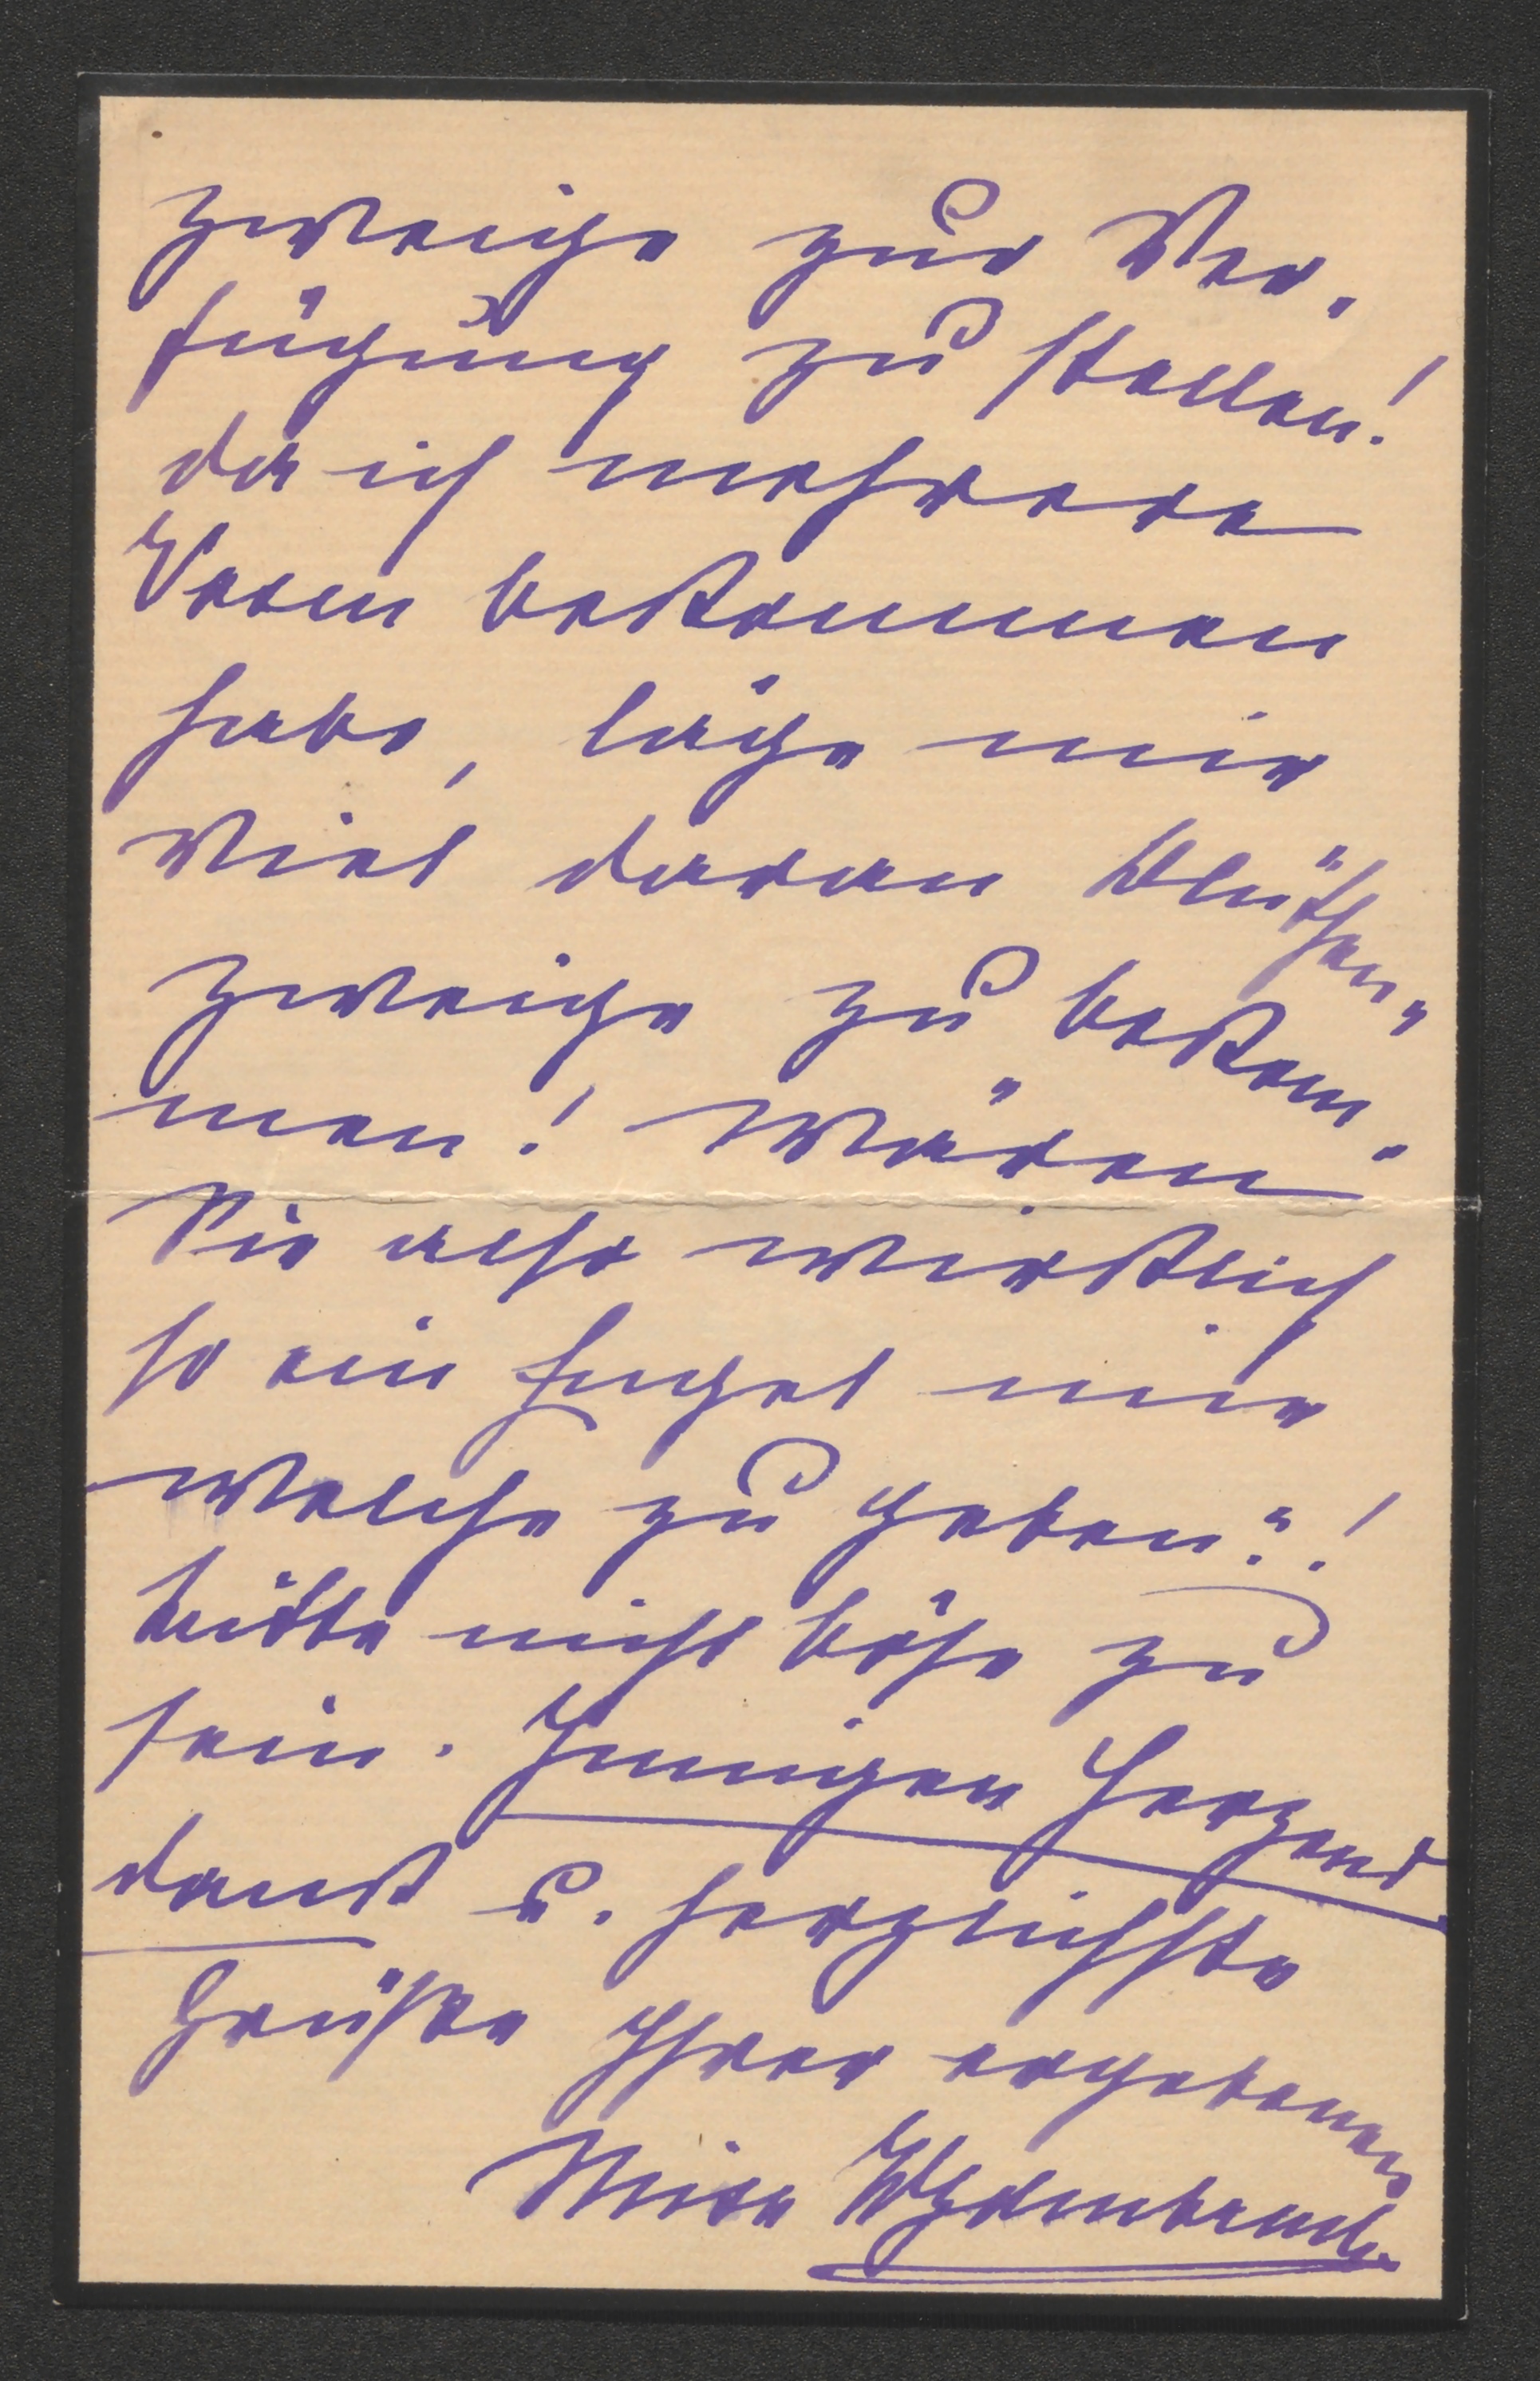 zweige zur Ver-
fügung zu stellen!
da ich mehrere
Vasen bekommen
habe, läge mir
viel daran Blüthen-
zweige zu bekom-
men! Wären
Sie also wirklich
so ein Engel mir
welche zu geben?!
bitte nicht böse zu
sein. Innigen Herzens
dank u. herzlichste
Grüße Ihrer ergebenen
Misa Wydenbruck